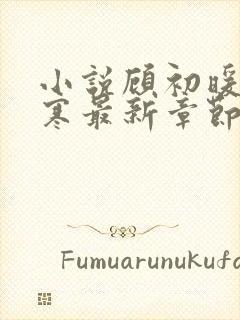 小说顾初暖
寒最新章节
Fumuarunukufa